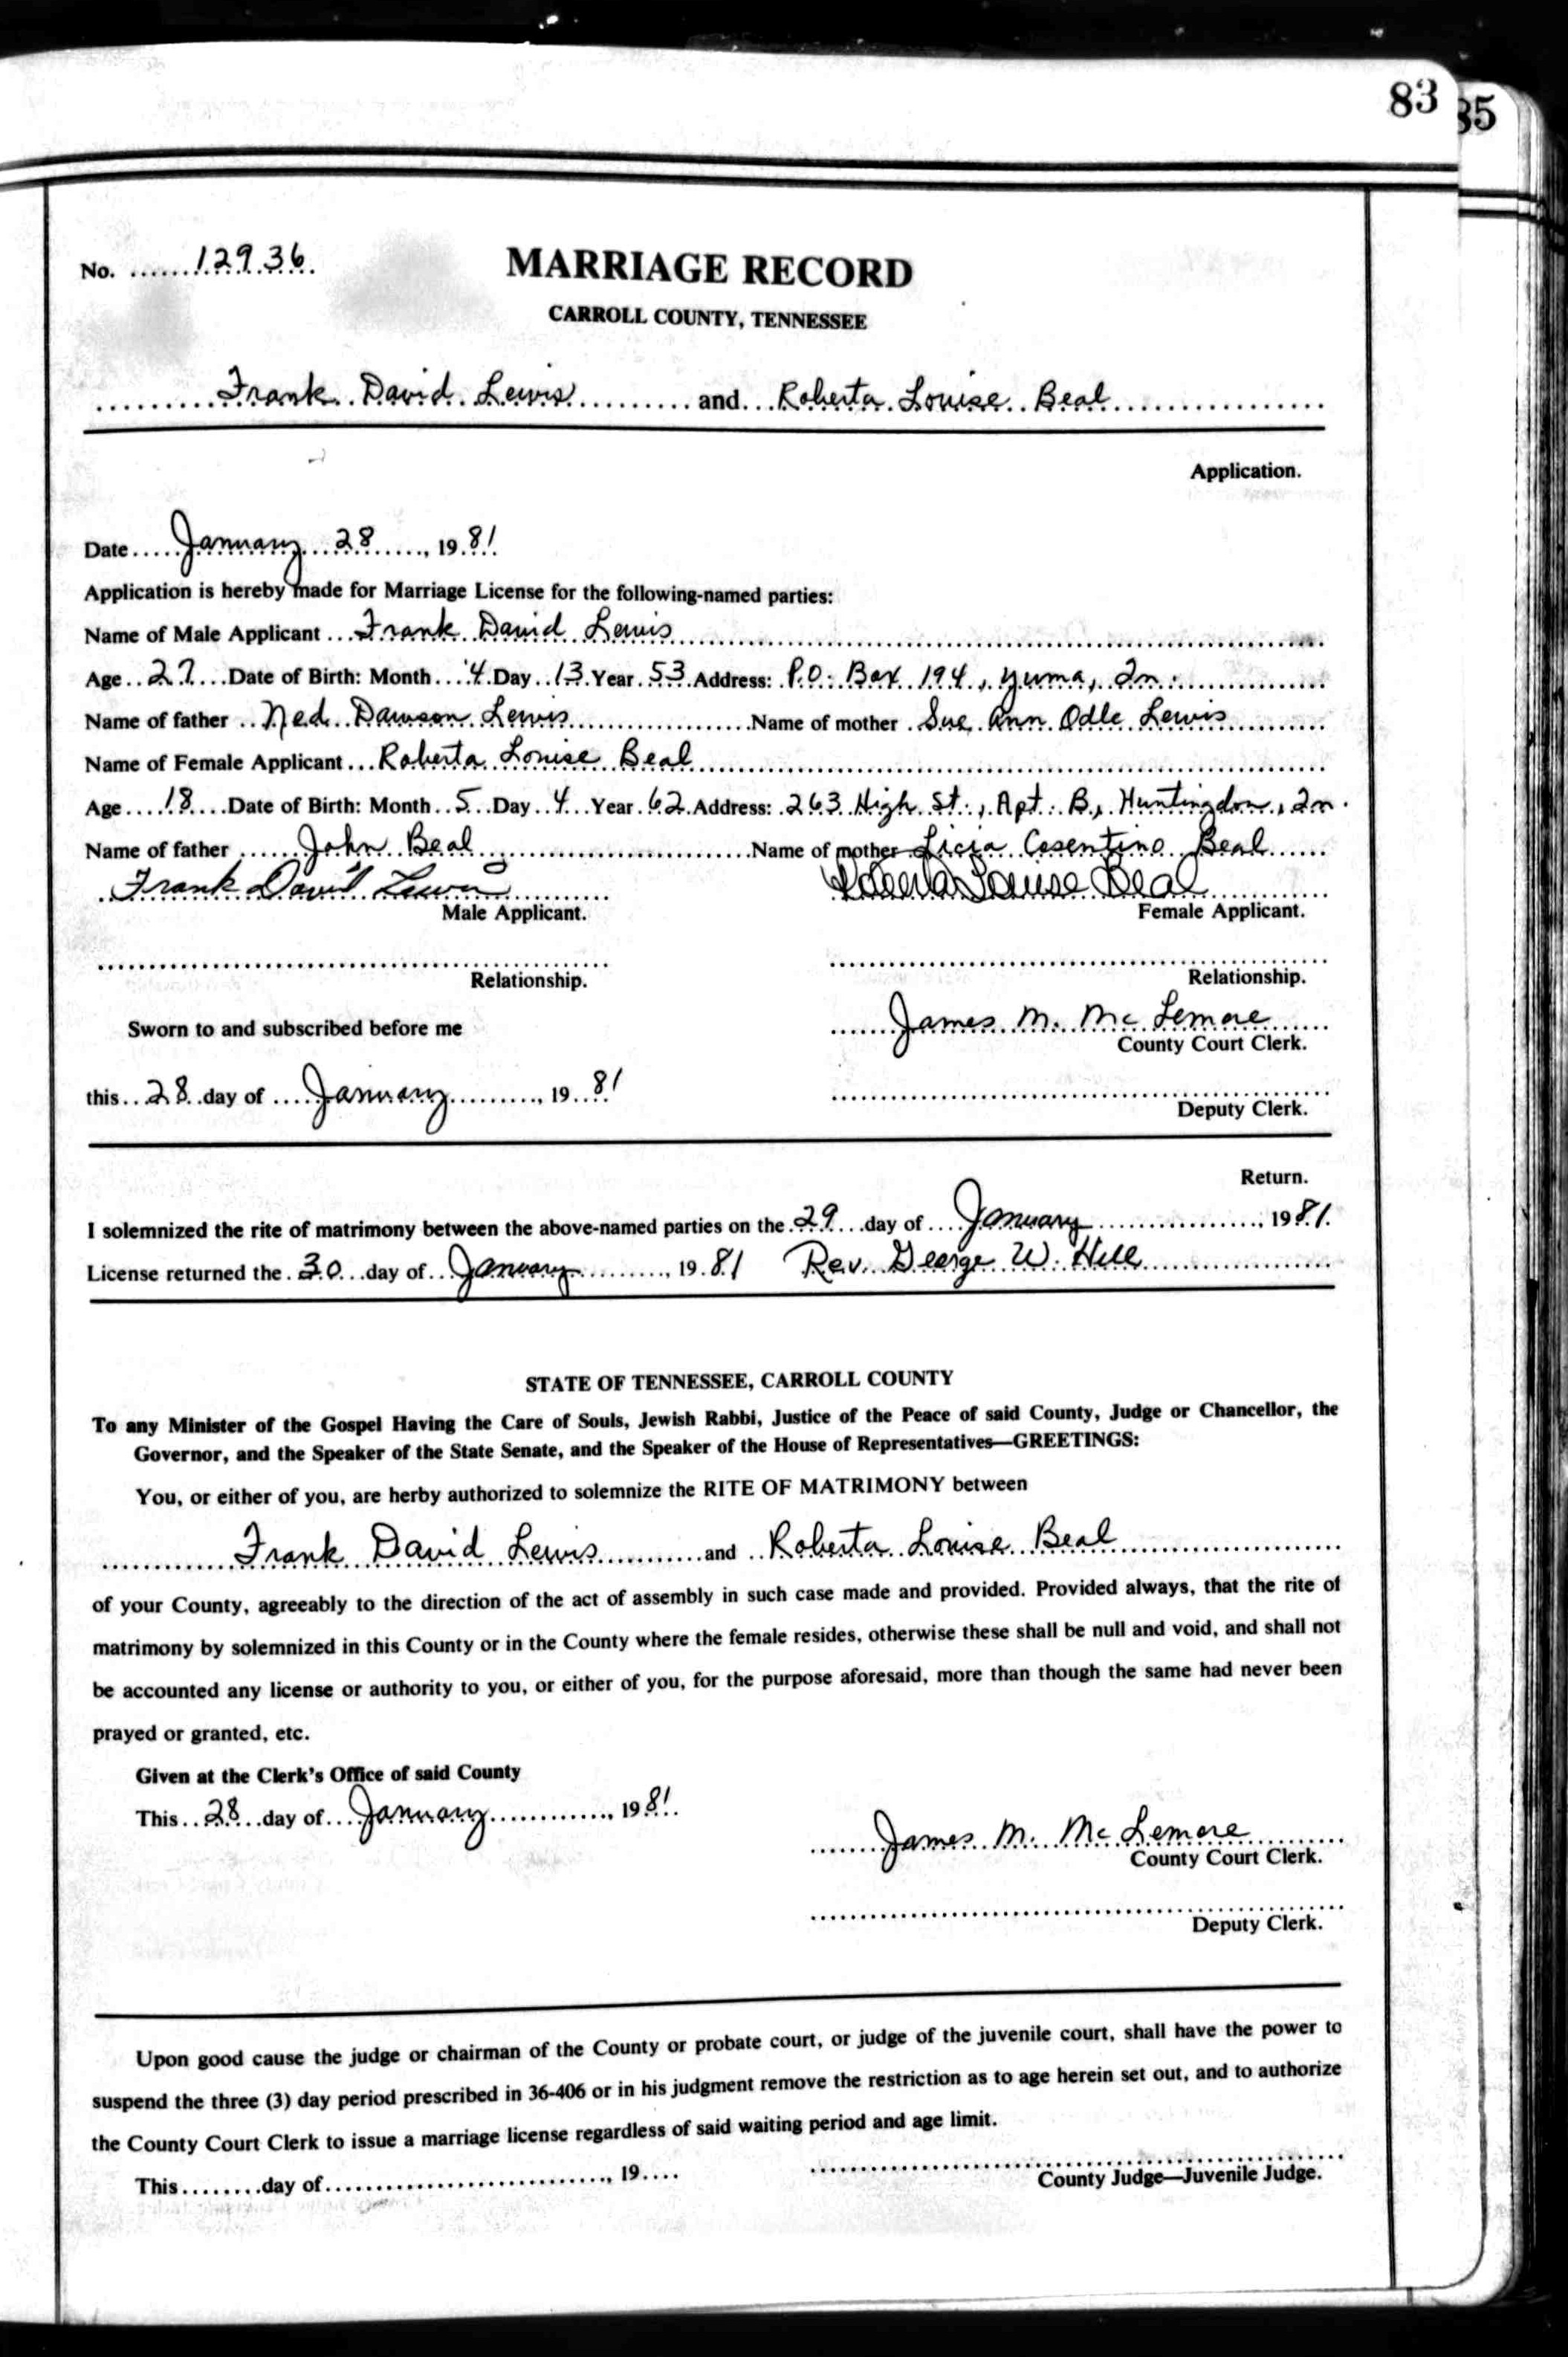 83
35
No. 12936
MARRIAGE RECORD
CARROLL COUNTY, TENNESSEE
Frank David Lewis and Roberta Louise Beal
Application.
Date January 28, 1981
Application is hereby made for Marriage License for the following-named parties:
Name of Male Applicant Frank David Lewis
Age 27 Date of Birth: Month 4 Day 13 Year 53 Address: P.O. Box 194, Yuma, Tn.
Name of father Ned Dawson Lewis Name of mother Sue Ann Odle Lewis
Name of Female Applicant Roberta Louise Beal
Age 18 Date of Birth: Month 5 Day 4 Year 62 Address: 263 High St., Apt. B, Huntingdon, Tn.
Name of father John Beal Name of mother Licia Cosentino Beal
Frank David Lewis Roberta Louise Beal
Male Applicant. Female Applicant.
Relationship. Relationship.
Sworn to and subscribed before me James M. McLemore
County Court Clerk.
this 28 day of January, 1981
Deputy Clerk.
Return.
I solemnized the rite of matrimony between the above-named parties on the 29 day of January, 1981.
License returned the 30 day of January, 1981 Rev. George W. Hill
STATE OF TENNESSEE, CARROLL COUNTY
To any Minister of the Gospel Having the Care of Souls, Jewish Rabbi, Justice of the Peace of said County, Judge or Chancellor, the
Governor, and the Speaker of the State Senate, and the Speaker of the House of Representatives—GREETINGS:
You, or either of you, are herby authorized to solemnize the RITE OF MATRIMONY between
Frank David Lewis and Roberta Louise Beal
of your County, agreeably to the direction of the act of assembly in such case made and provided. Provided always, that the rite of
matrimony by solemnized in this County or in the County where the female resides, otherwise these shall be null and void, and shall not
be accounted any license or authority to you, or either of you, for the purpose aforesaid, more than though the same had never been
prayed or granted, etc.
Given at the Clerk's Office of said County
This 28 day of January, 1981.
James M. McLemore
County Court Clerk.
Deputy Clerk.
Upon good cause the judge or chairman of the County or probate court, or judge of the juvenile court, shall have the power to
suspend the three (3) day period prescribed in 36-406 or in his judgment remove the restriction as to age herein set out, and to authorize
the County Court Clerk to issue a marriage license regardless of said waiting period and age limit.
This........day of............................, 19....
County Judge—Juvenile Judge.